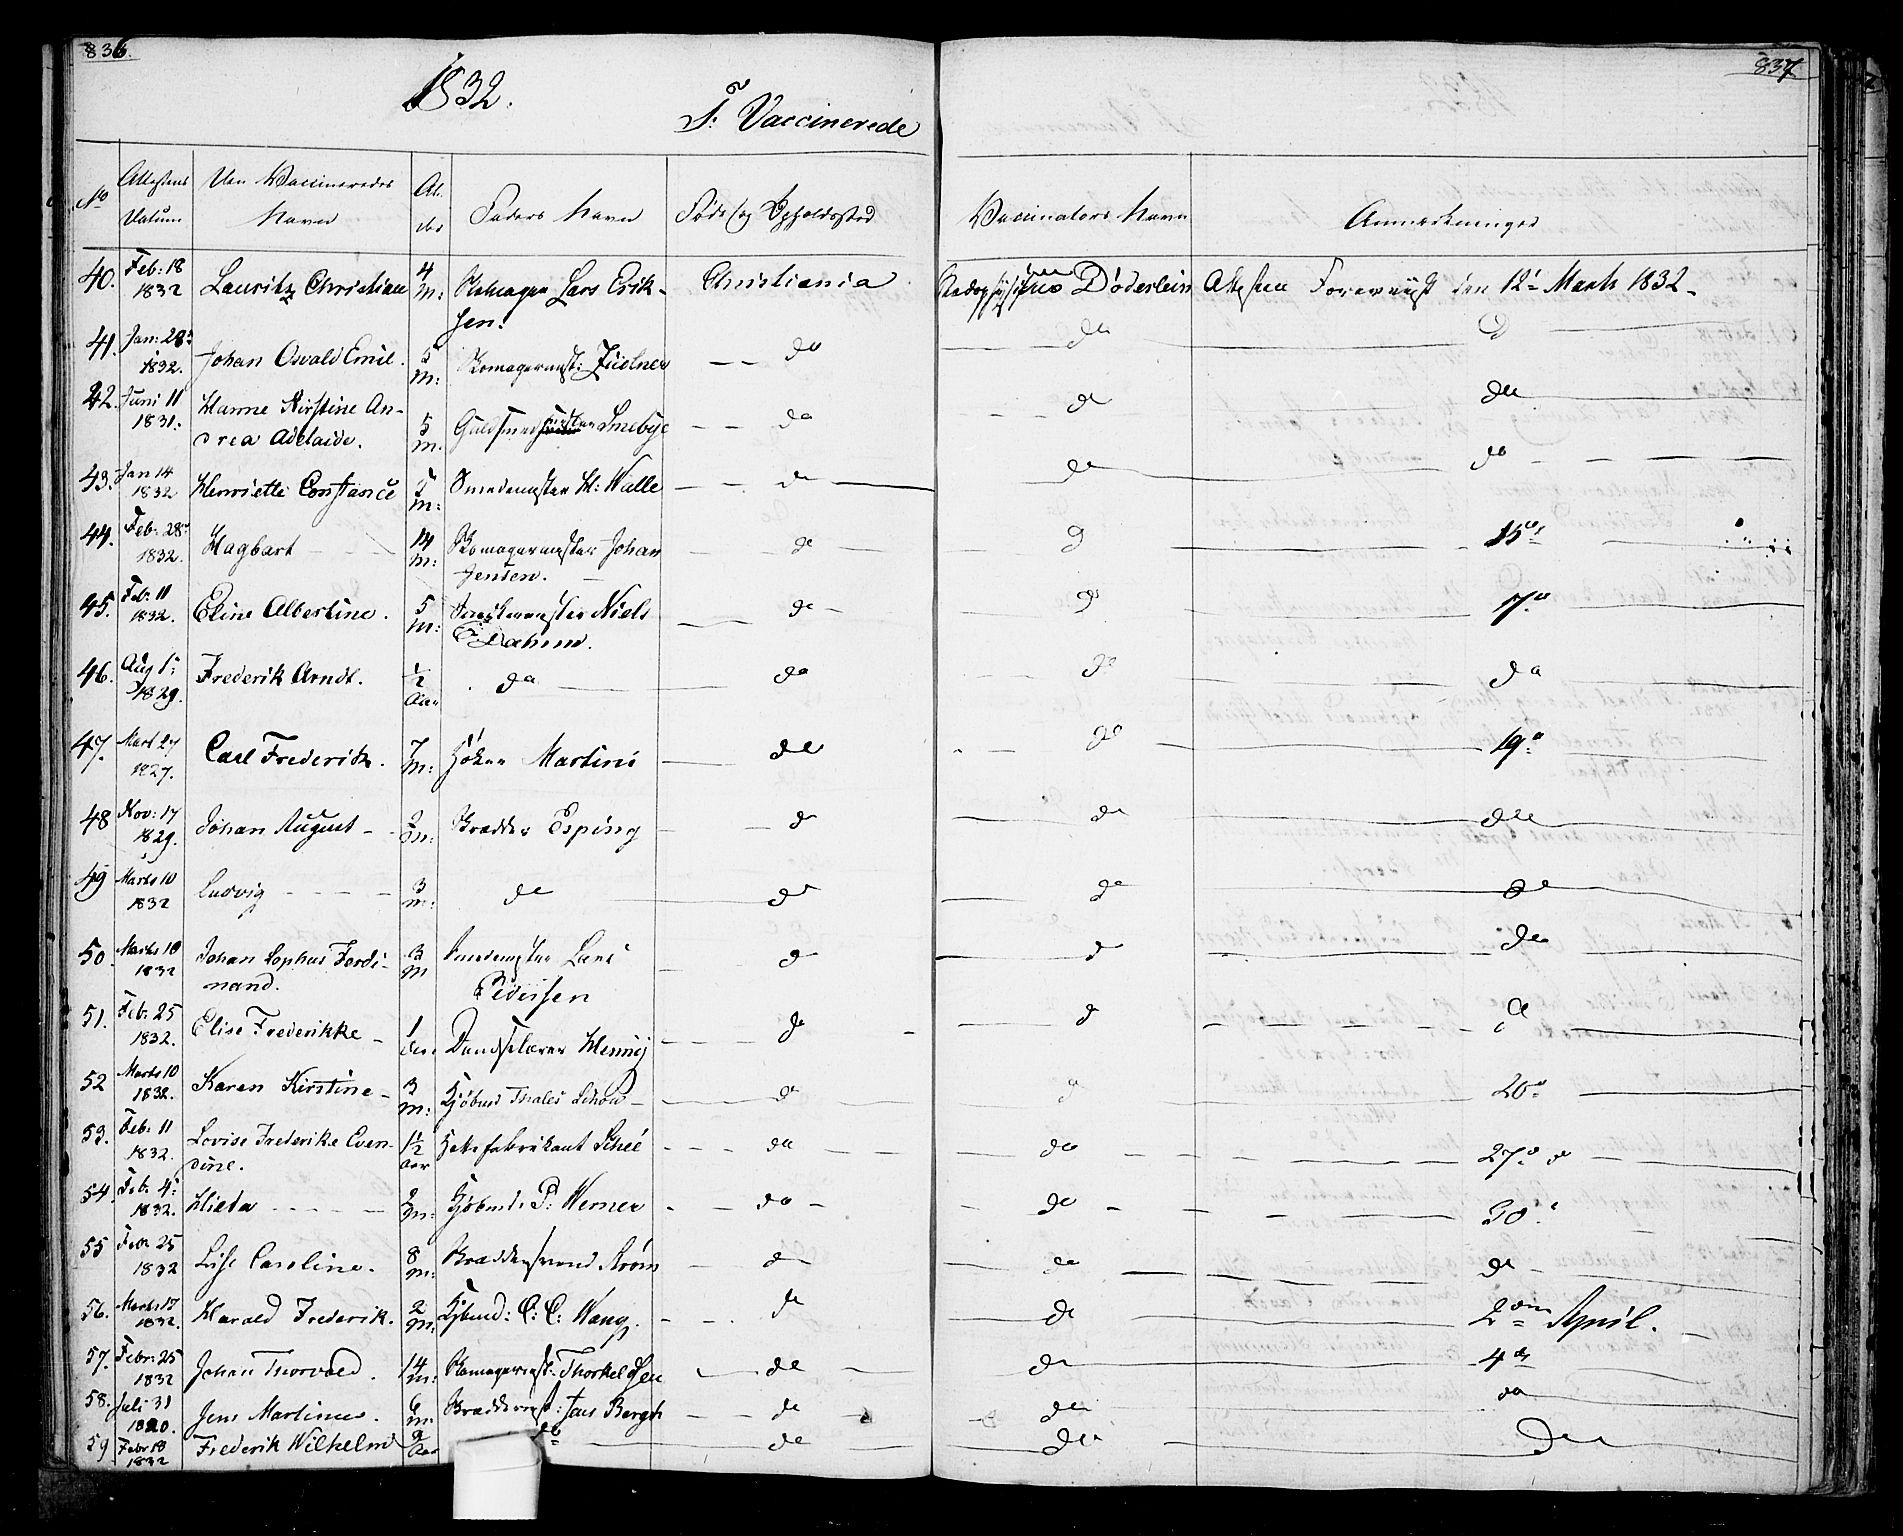 836.
837
1832.
F: Vaccinerede
No Attestens Datum Den Vaccineredes Navn Al- der Faders Navn Føde og Opholdssted Vaccinators Navn Anmærkninger
40. Feb: 18 1832 Lauritz Christian 4 M: Lars Erik- sen. Christiania Stadsphysicus Døderlein Attesten Foreviist den 12te Marts 1832
41. Jan: 28 1832. Johan Osvald Emil. 5 M: do do
42. Juni 11 1831. Hanne Kirstine An- drea Adelaide. 5 m. Guldsmed Smebye do do do
43. Jan 14 1832 Henriette Constance M: Smedemester H: Walle do do do
44. Feb: 28 1832. Hagbart 14 M: Skomagermester Johan Jensen. do do 15de
45. Feb: 11 1832. Eline Albertine. 5 M: Snedkermester Niels do do 17de
46. Aug 1 1829. Frederik Arndt. 1/2 Aar do do do do
47. Mart 27 1827. Carl Frederik. 7 M: Høker Martini do do 19de
48 Nov: 17 1829. Johan August M: Esping do do do
49 Marts 10 1832 Ludvig 3 m: do do do do
50. Marts 10 1832 Johan Sophus Ferdi- nand. 3 M Smedemester Lars Pedersen do do do
51. Feb: 25 1832. Elise Frederikke 1 Dandselærer Hennig do do do
52 Marts 10 1832. Karen Kirstine 3 M: Kjøbmd Thales Schow do do 20de
53. Feb: 11 1832. Lovise Frederike Even- dine. 1 1/2 aar Scheé do do 27de do
54. Feb. 4 1832. M: Kjøbmd. P: Werner do do 30te
55 Febr 25 1832 Lise Caroline. 8 M: do do do
56. Marts 17 1832. Harald Frederik. 2 M: Kjøbmd: C: C: Wang. do do 2den April.
57. Febr: 25 1832 Johan Thorvald. 14 M: Skomagermest: Thorkeldsen do do 4de
58. Juli 31 1820. Jens Martinus. 6 m: Jens Bergh do do do
59 Febr 18 1832 Frederik Wilhelm 9 Aar do do do do